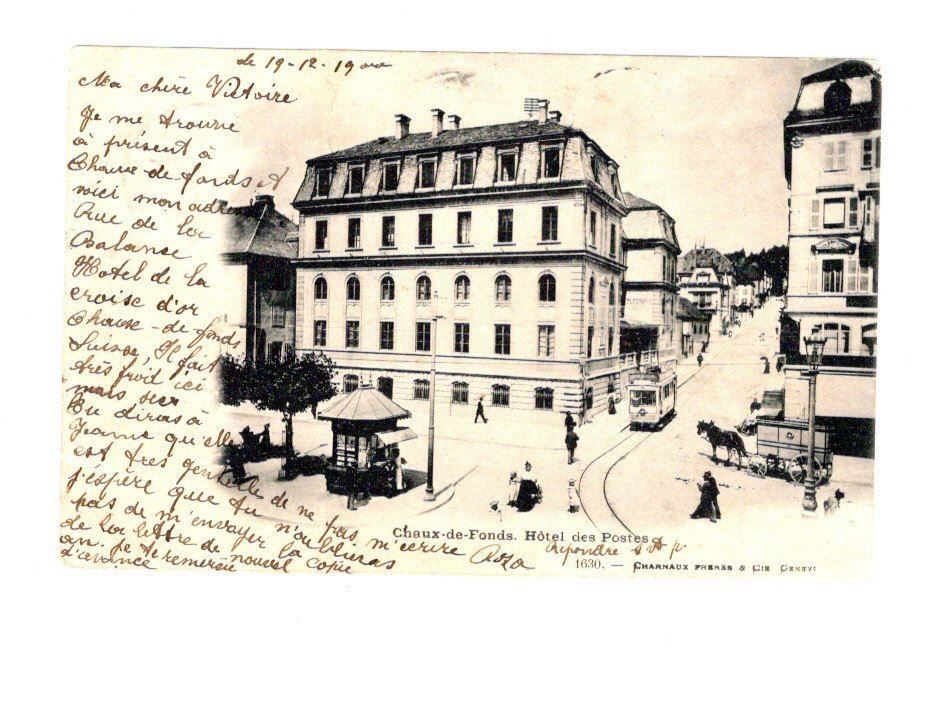 le 19-12-19
Ma chère Victoire
Je me trouve
à présent à
Chaux-de-fonds et
voici mon adresse
Rue de la
Balance
Hotel de la
croise d'or
Chause-de-fonds
Suisse, Il fait
très froid ici
mais sec
Tu diras à
Jeanne qu'elle
est tres gentille de ne pas m'écrire
j'éspère que tu n'oublieras
pas de m'envoyer la copie
de la lettre de nouvel
an. Je te remercie
d'avance
Roza
Repondre S. V. p.
Chaux-de-Fonds. Hôtel des Postes
1630. — CHARNAUX FRERES & CIE GENEVE